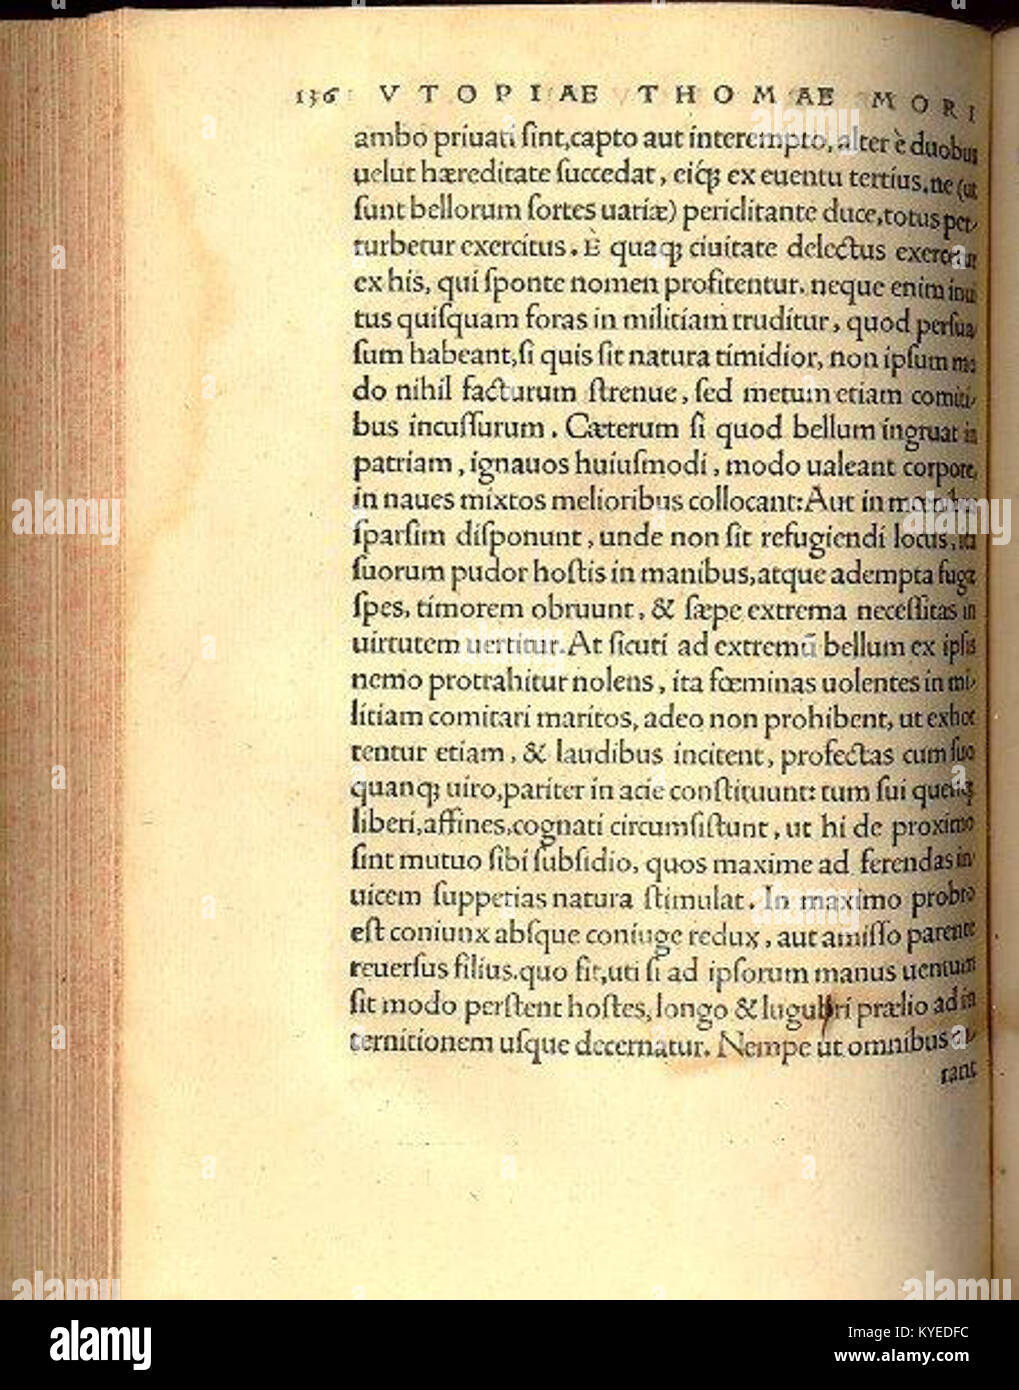 136 VTOPIAE THOMAE MORI
ambo priuati ſint, capto aut interempto, alter è duobus
uelut hæreditate ſuccedat, eiq́; ex euentu tertius, ne (ut
ſunt bellorum ſortes uariæ) periclitante duce, totus per-
turbetur exercitus. È quaq; ciuitate delectus exercetur
ex his, qui ſponte nomen profitentur. neque enim inui
tus quiſquam foras in militiam truditur, quod perſua
ſum habeant, ſi quis ſit natura timidior, non ipſum mo
do nihil facturum ſtrenue, ſed metum etiam comiti-
bus incuſſurum. Cæterum ſi quod bellum ingruat in
patriam, ignauos huiuſmodi, modo ualeant corpore,
in naues mixtos melioribus collocant: Aut in mœnibus
ſparſim diſponunt, unde non ſit refugiendi locus, ita
ſuorum pudor hoſtis in manibus, atque adempta fugæ
ſpes, timorem obruunt, & ſæpe extrema neceſſitas in
uirtutem uertitur. At ſicuti ad extremũ bellum ex ipſis
nemo protrahitur nolens, ita fœminas uolentes in mi-
litiam comitari maritos, adeo non prohibent, ut exhor
tentur etiam, & laudibus incitent, profectas cum ſuo
quanq; uiro, pariter in acie conſtituunt: tum ſui quenq;
liberi, affines, cognati circumſiſtunt, ut hi de proximo
ſint mutuo ſibi ſubſidio, quos maxime ad ferendas in-
uicem ſuppetias natura ſtimulat. In maximo probro
eſt coniunx abſque coniuge redux, aut amiſſo parente
reuerſus filius. quo fit, uti ſi ad ipſorum manus uentum
ſit modo perſtent hoſtes, longo & lugubri prælio ad in
ternitionem uſque decernatur. Nempe ut omnibus cu-
rant
alamy
Image ID: KYEDFC
www.alamy.com